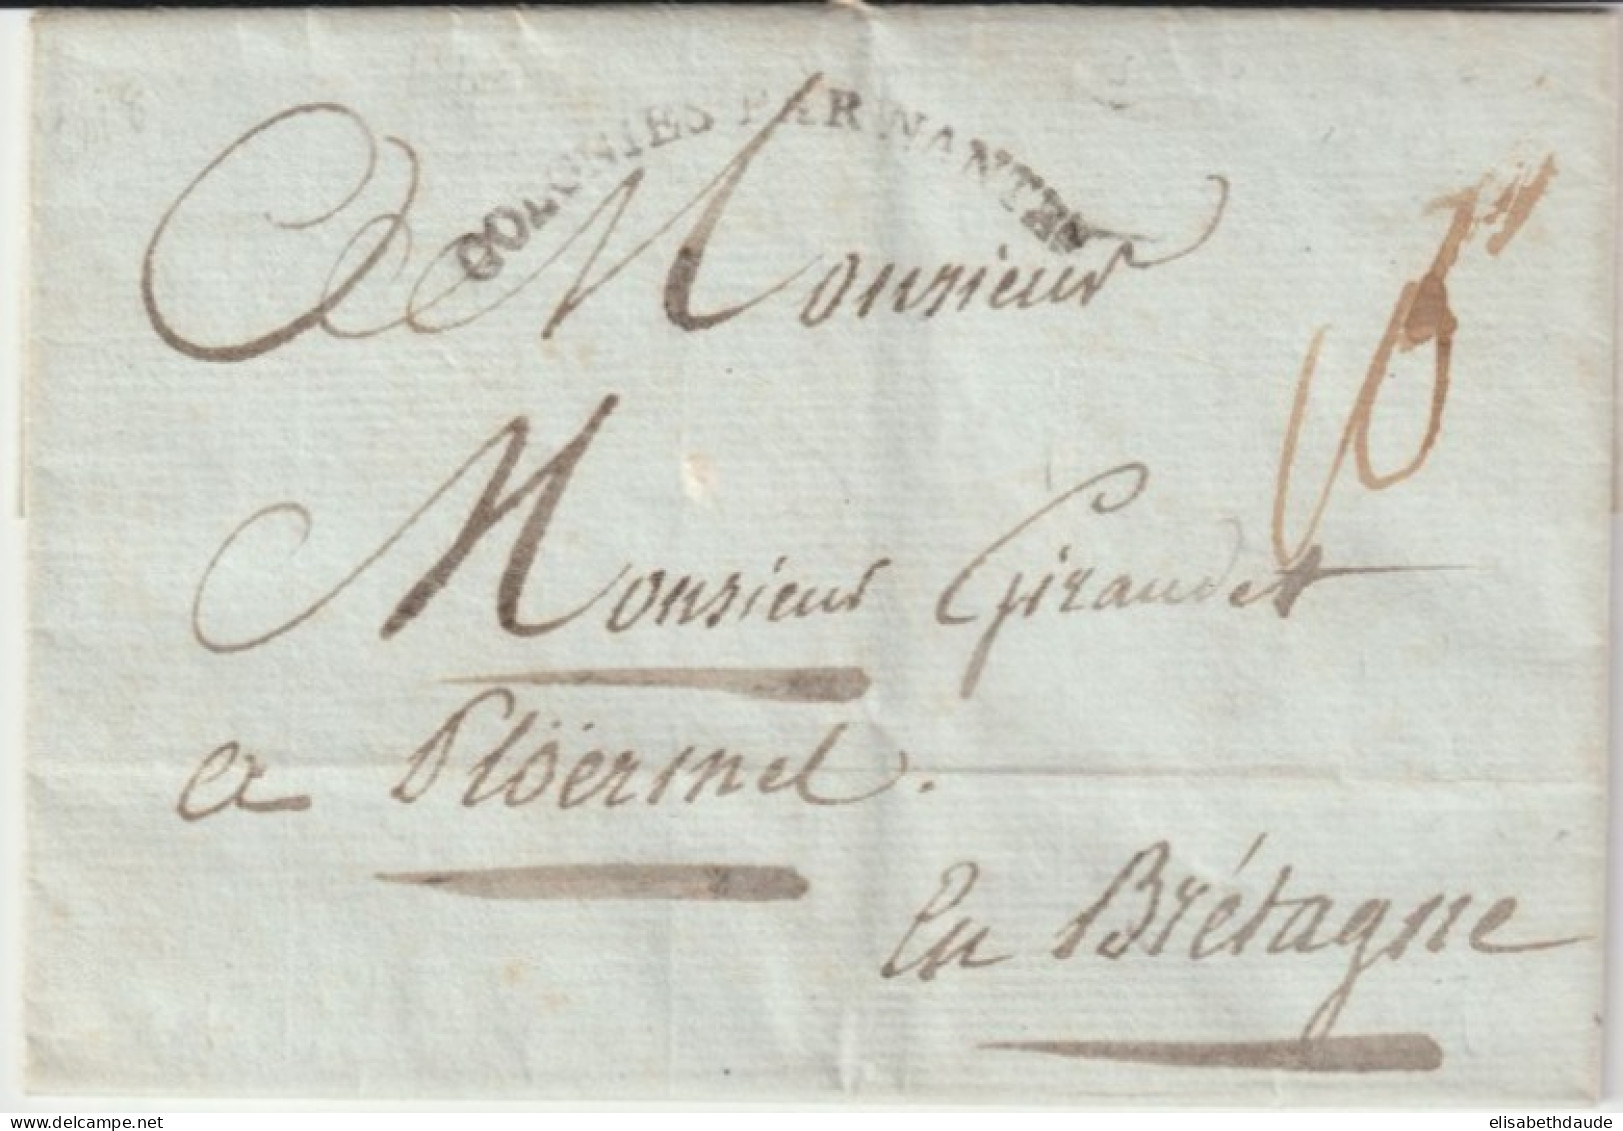 COLONIES PAR NANTES
A Monsieur
Monsieur Giraudet
a Ploërmel.
En Brétagne
elisabethdaude